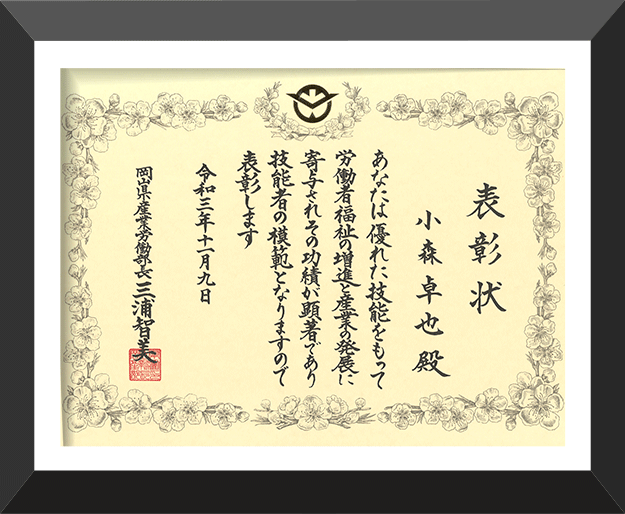 表彰状
小森卓也殿
あなたは優れた技能をもって
労働者福祉の増進と産業の発展に
寄与されその功績が顕著であり
技能者の模範となりますので
表彰します
令和三年十一月九日
岡山県産業労働部長三浦智美